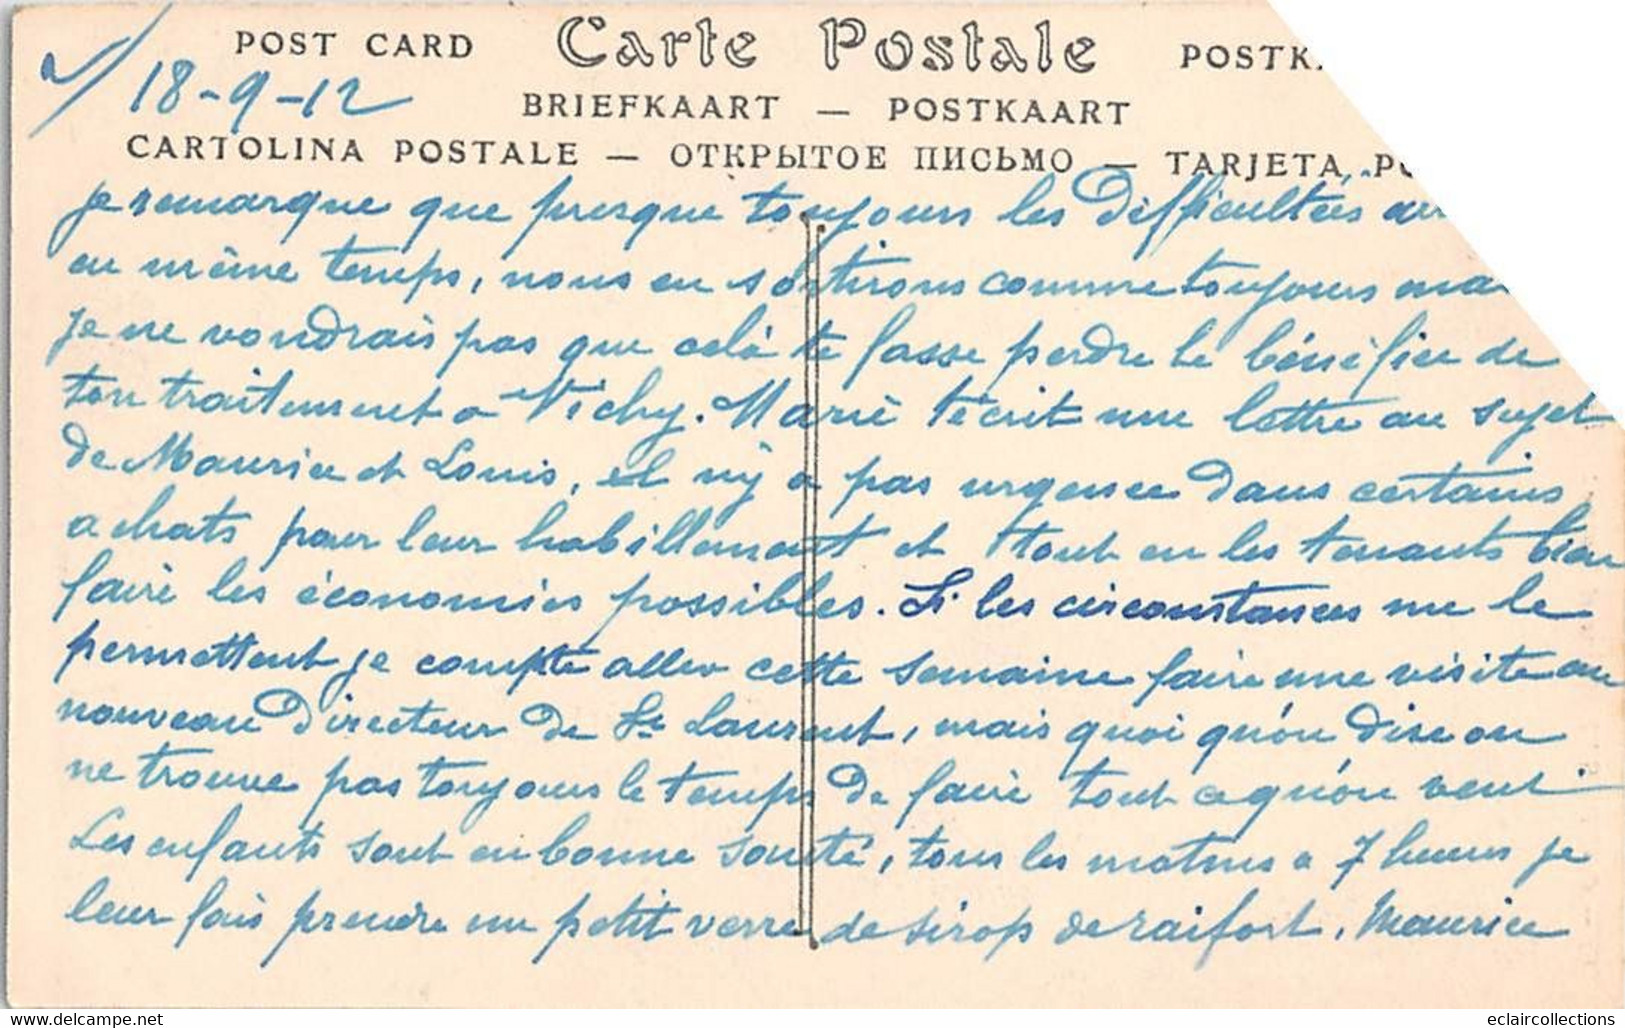 POST CARD Carte Postale POSTK
2/ 18-9-12
BRIEFKAART — POSTKAART
CARTOLINA POSTALE — ОТКРЫТОЕ ПИСЬМО — TARJETA PO
je remarque que presque toujours les difficultées
en même temps, nous en sortirons comme toujours mais
je ne voudrais pas que celà te fasse perdre le bénéfice de
ton traitement a Vichy. Marie t'écrit une lettre au sujet
de Maurice et Louis, il n'y a pas urgence dans certains
achats pour leur habillement et tout en les tenants bien
faire les économies possibles. Si les circonstances me le
permettent je compte aller cette semaine faire une visite au
nouveau Directeur de St Laurent, mais quoi qu'on dise on
ne trouve pas toujours le temps de faire tout ce qu'on veut
Les enfants sont en bonne santé, tous les matins a 7 heures je
leur fais prendre un petit verre de sirop de raifort, Maurice
www.delcampe.net eclaircollections